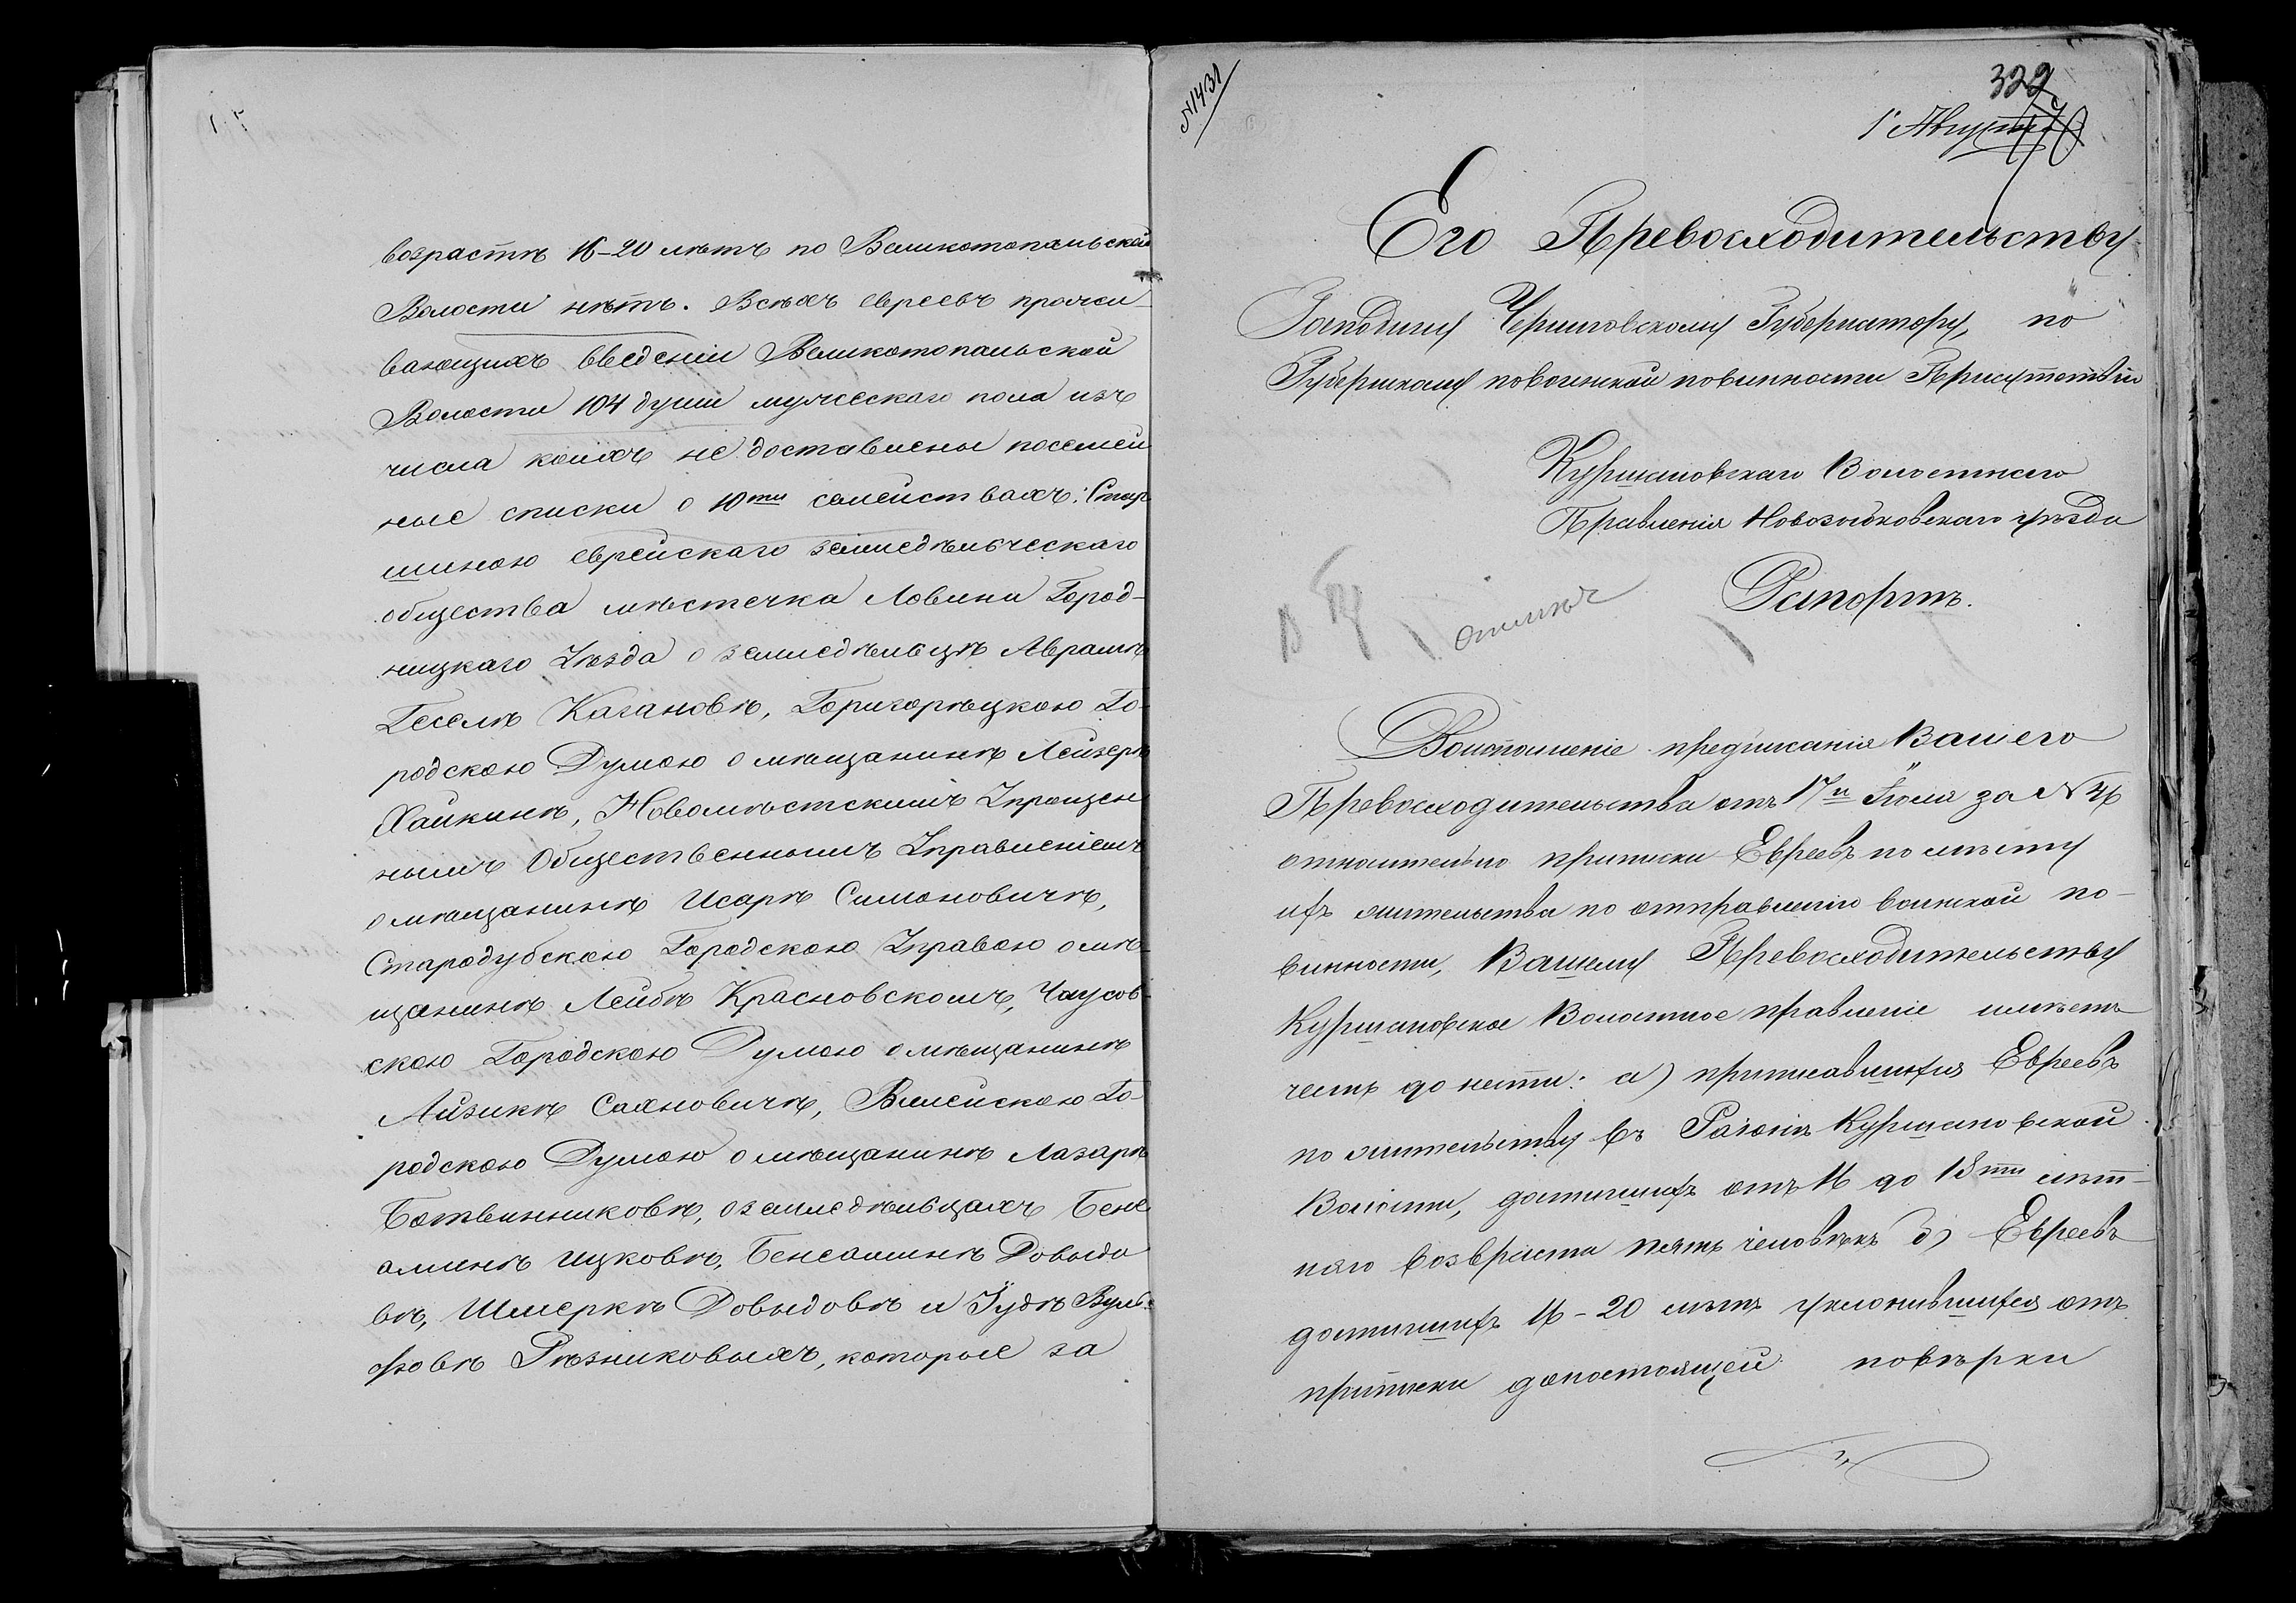 возрастѣ 16-20 лѣтъ по Великотопальской
Волости нѣтъ. Всѣхъ евреевъ прожи-
вающихъ введеніи Великотопальской
Волости 104 души мужескаго пола изъ
числа коихъ не доставлены посемей
ные списки о 10ти семействахъ: Стар
шиною еврейскаго земледѣльческаго
общества мѣстечка Ловыни Город-
ницкаго Уѣзда о земледѣльцѣ Абрамѣ
Геселѣ Кагановѣ, Горигорѣцкою Го-
родскою Думою о мѣщанинѣ Лейзерѣ
Хайкинѣ, Новомѣстскимъ Упрощен
нымъ Общественнымъ Управленіемъ
о мѣщанинѣ Исарѣ Симоновичѣ,
Стародубскою Городскою Управою о мѣ-
щанинѣ Лейбѣ Красновскомъ, Чаусов-
скою Городскою Думою о мѣщанинѣ
Айзикѣ Сахновичѣ, Вилейскою Го-
родскою Думою о мѣщанинѣ Лазарѣ
Ботвинниковѣ, о земледѣльцахъ Бене
аминѣ Ицковѣ, Бенеаминѣ Довыдо
вѣ, Шмеркѣ Довыдовѣ и Іудѣ Вуль-
фовѣ Рѣзниковыхъ, которые за
№1431
322
1 Августа
Его Превосходительству
Господину Черниговскому Губернатору, по
Губернскому повоинской повинности Присутствію
Куршановскаго Волостнаго
Правленія Новозыбковскаго уѣзда
Рапортъ.
Воисполненіе предписанія Вашего
Превосходительства отъ 17го Іюля за №
относительно приписки Евреевъ по мѣсту
ихъ жительства по отправленію воинской по-
винности, Вашему Превосходительству
Куршановское Волостное правленіе имѣетъ
честь донести: а) приписавшихся Евреевъ
по жительству въ Раіонѣ Куршановской
Волости, достигшихъ отъ 16 до 18ти лѣт-
няго возвраста пять человѣкъ б) Евреевъ
достигшихъ 16-20 лѣтъ уклонившихся отъ
приписки донастоящей повѣрки